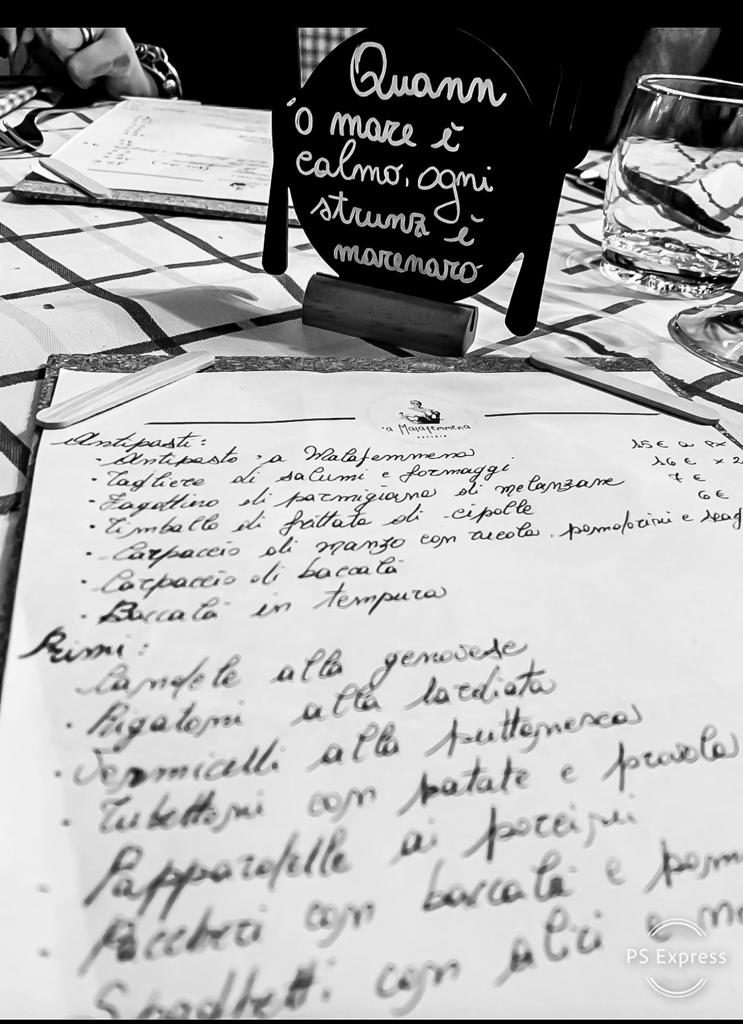 Quann
'o mare è
calmo, ogni
strunz è
marenaro
'a Malafemmena
Antipasti:
· Antipasto 'a Malafemmena 15€ a px
· Tagliere di salumi e formaggi 16€ x 2
· Fagottino di parmigiana di melanzane 7€
· Timballo di frittata di cipolle 6€
· Carpaccio di manzo con rucola, pomodorini e scag
· Carpaccio di baccalà
· Baccalà in tempura
Primi:
Candele alla genovese
· Rigatoni alla lardiata
· Vermicelli alla puttanesca
· Tubettoni con patate e provola
Pappardelle ai porcini
· Paccheri con baccalà e pom
· Spaghetti con alici e
PS Express